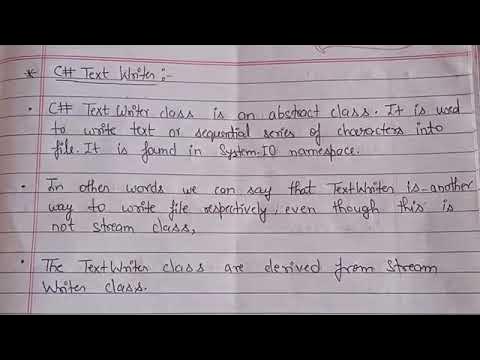 * C# Text Writer :-
• C# TextWriter class is an abstract class. It is used
to write text or sequential series of characters into
file. It is found in System.IO namespace.
• In other words we can say that TextWriter is another
way to write file respectively, even though this is
not stream class,
• The TextWriter class are derived from Stream
Writer class.